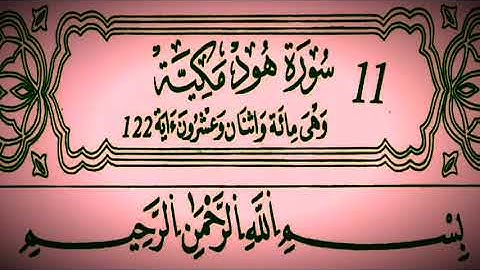 11 سُورَةُ هُودٍ مَكِّيَّة
وَهْيَ مِائَة وَاثْنَانِ وَعِشْرُونَ ءَايَة 122
بِسْمِ اِللَّهِ اِلرَّحْمَٰنِ اِلرَّحِيمِ